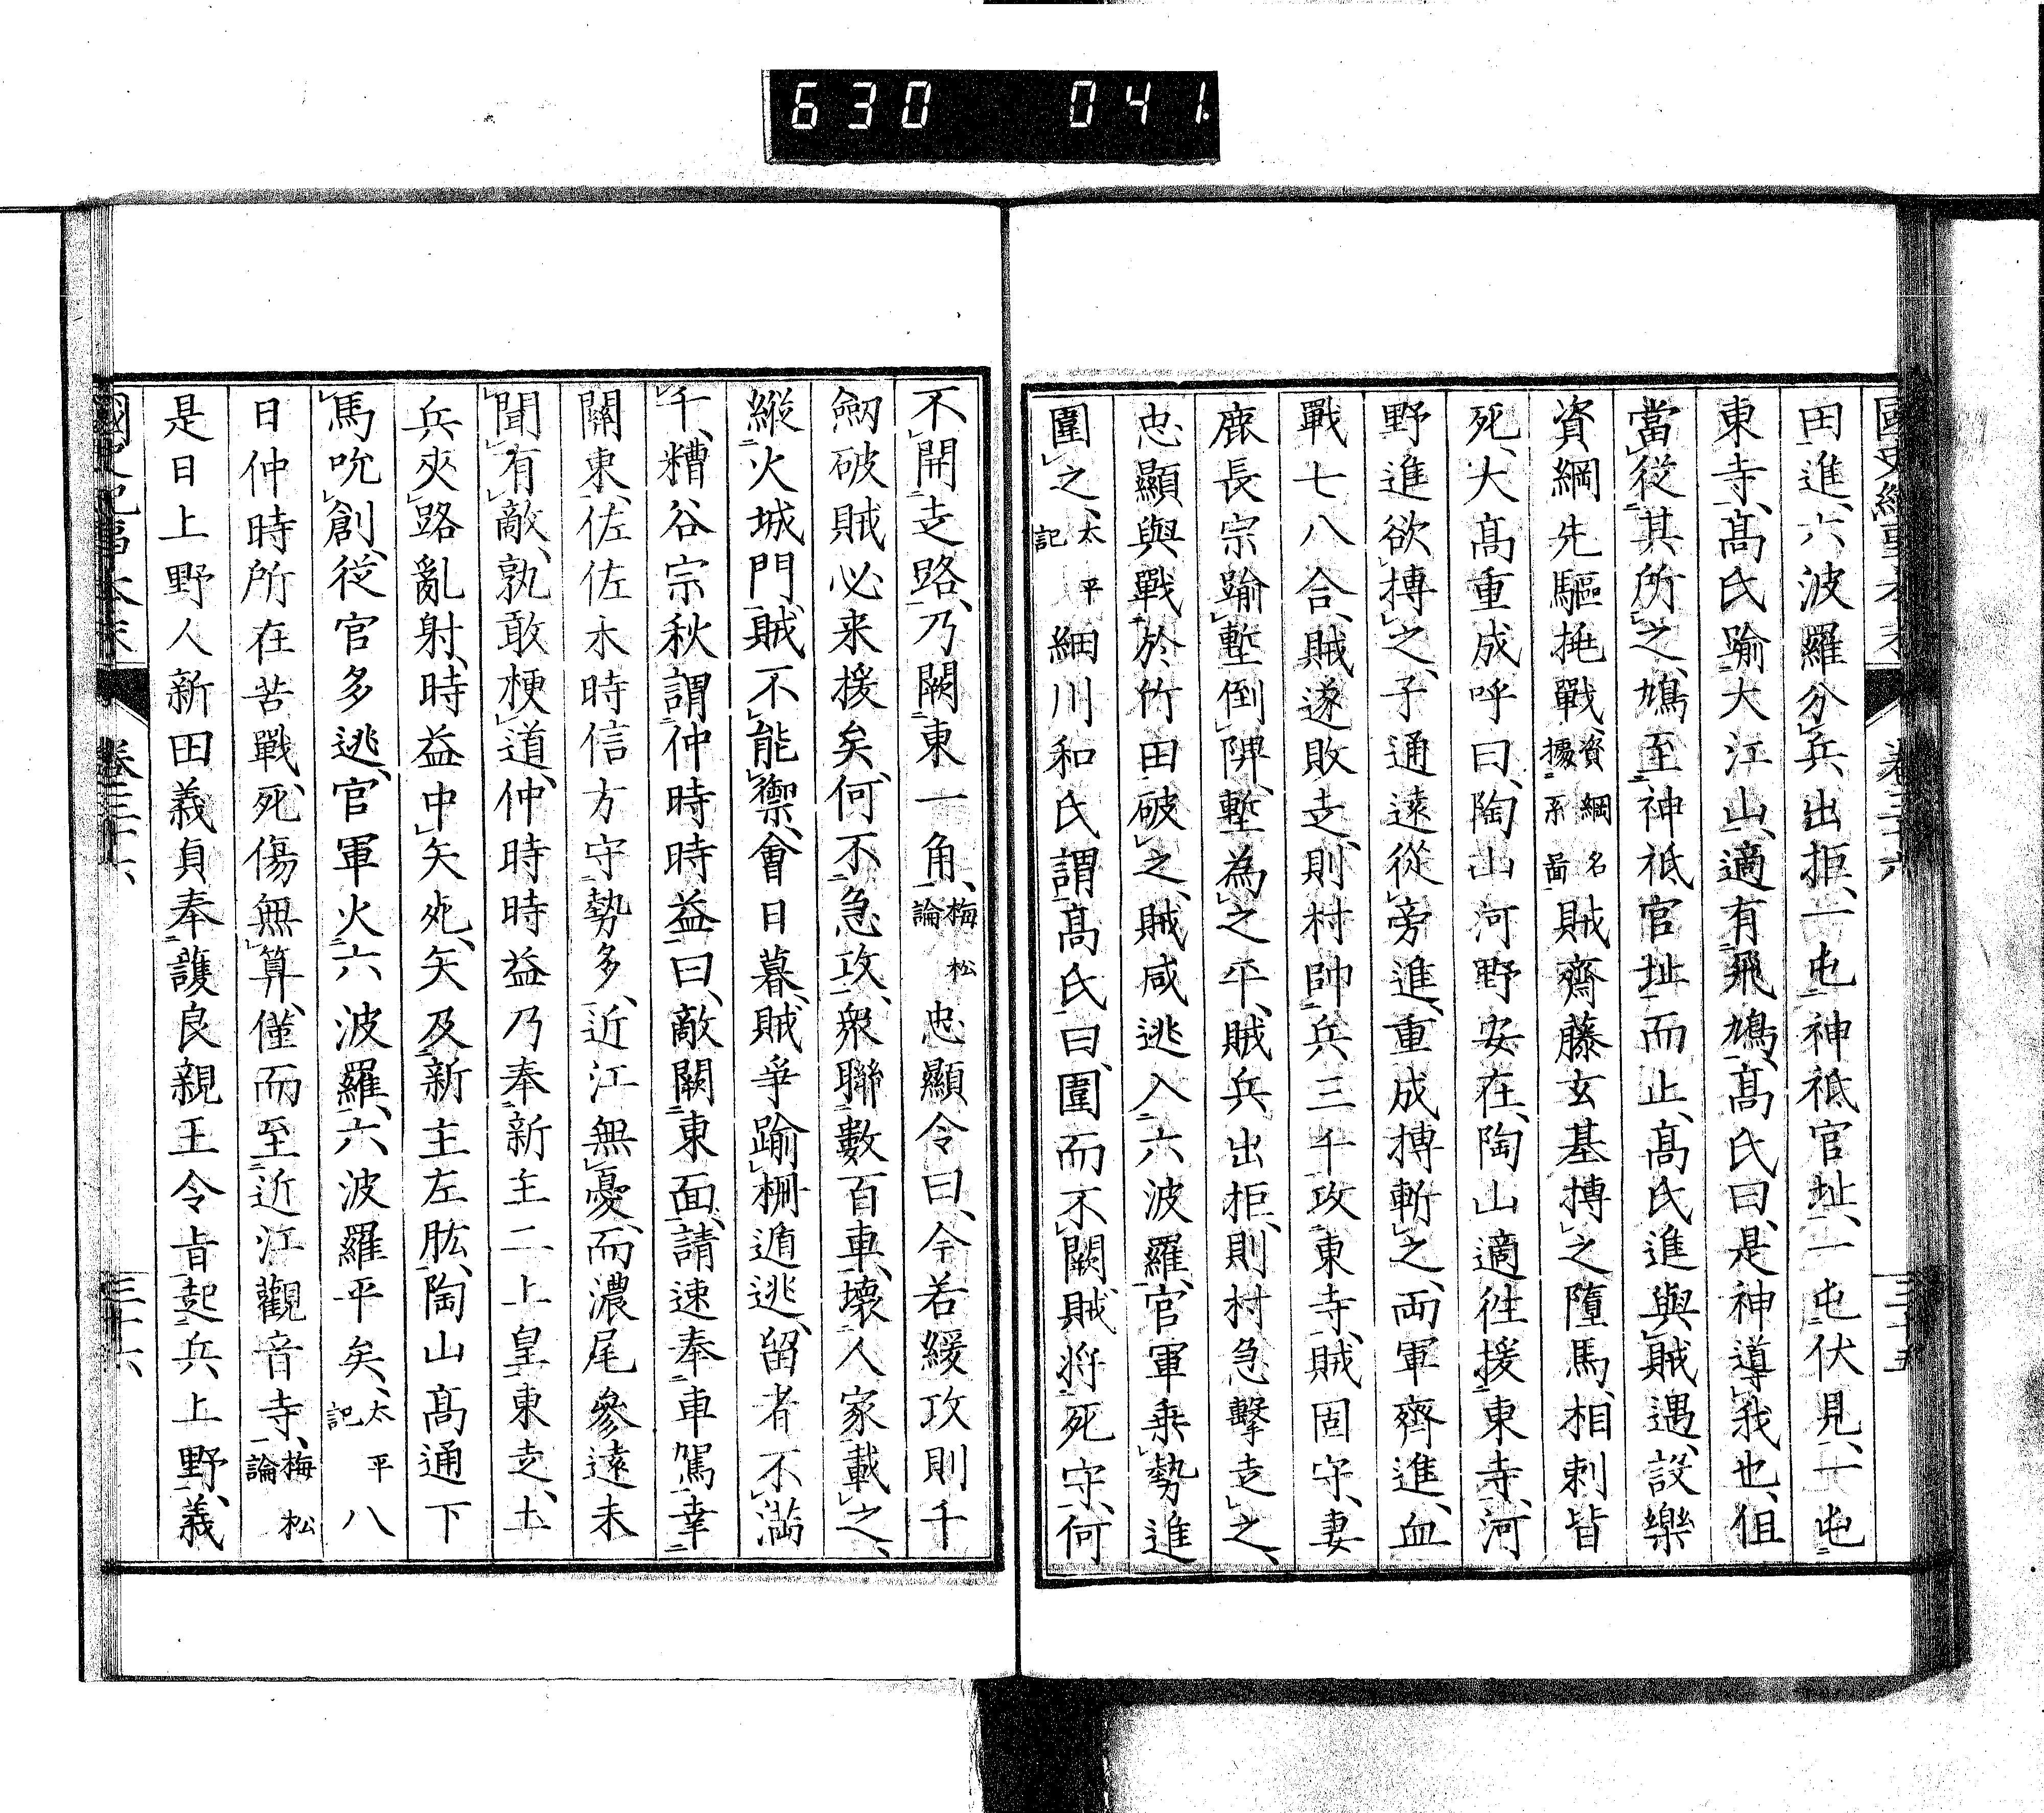 630 041
國史紀事本末 卷三十六 三十五
田進、六波羅分兵出拒、一屯神祗官址、一屯伏見、一屯
東寺、髙氏踰大江山、適有飛鳩、髙氏曰、是神導我也、但
當從其所之、鳩至神祗官址而止、髙氏進與賊遇、設樂
資綱先驅挑戰、資綱名據系圖賊齋藤玄基搏之墮馬、相刺皆
死、大髙重成呼曰、陶山河野安在、陶山適徃援東寺、河
野進欲搏之、子通遠從旁進、重成搏斬之、兩軍齊進、血
戰七八合、賊遂敗走、則村帥兵三千攻東寺、賊固守、妻
鹿長宗踰塹倒陴、塹為之平、賊兵出拒、則村急擊走之、
忠顯與戰於竹田破之、賊咸逃入六波羅、官軍乘勢進
圍之、太平記細川和氏謂髙氏曰、圍而不闕、賊將死守、何
不開走路、乃闕東一角、梅松論忠顯令曰、今若緩攻則千
劒破賊必来援矣、何不急攻、衆聯數百車、壊人家載之、
縱火城門、賊不能禦、會日暮、賊爭踰柵遁逃、留者不滿
千、糟谷宗秋謂仲時時益曰、敵闕東面、請速奉車駕幸
關東、佐佐木時信方守勢多、近江無憂、而濃尾參遠未
聞有敵、孰敢梗道、仲時時益乃奉新主二上皇東走、土
兵夾路亂射、時益中矢死、矢及新主左肱、陶山髙通下
馬吮創、從官多逃、官軍火六波羅、六波羅平矣、太平記八
日仲時所在苦戰、死傷無算、僅而至近江觀音寺、梅松論
是日上野人新田義貞奉護良親王令旨起兵上野、義
國史紀事本末 卷三十六 三十六